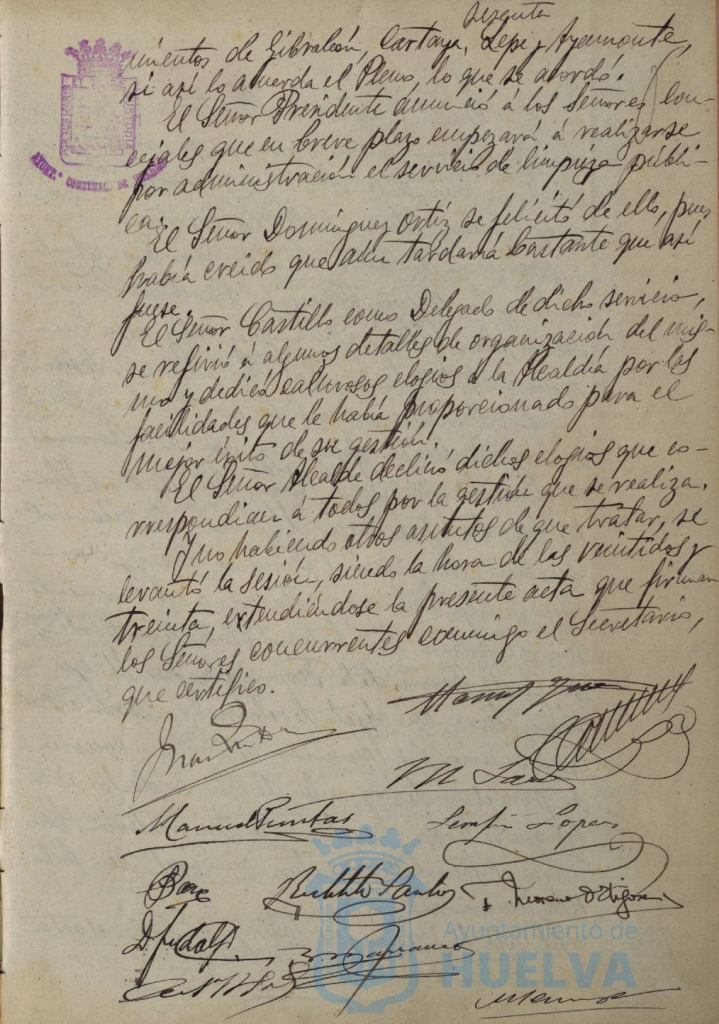 sesenta
mientos de Gibraleón, Cartaya, Lepe y Ayamonte,
si así lo acuerda el Pleno, lo que se acordó.
El Señor Presidente anunció á los Señores Con-
cejales que en breve plazo empezará á realizarse
por administración el servicio de limpieza públi-
ca.
El Señor Domínguez Ortiz se felicitó de ello, pues
había creido que aun tardaría bastante que así
fuese.
El Señor Castillo como Delegado de dicho servicio,
se refirió á algunos detalles de organización del mis-
mo y dedicó calurosos elogios á la Alcaldía por las
facilidades que le había proporcionado para el
mejor éxito de su gestión.
El Señor Alcalde declinó dichos elogios que co-
rrespondían á todos por la gestión que se realiza.
Y no habiendo otros asuntos de que tratar, se
levantó la sesión, siendo la hora de las veintidos y
treinta, extendiéndose la presente acta que firman
los Señores concurrentes conmigo el Secretario,
que certifico.
Manuel Puntas
Serafín López
F. Moreno Ortigosa
AYUNT.º CONSTNAL. DE
Ayuntamiento de
HUELVA